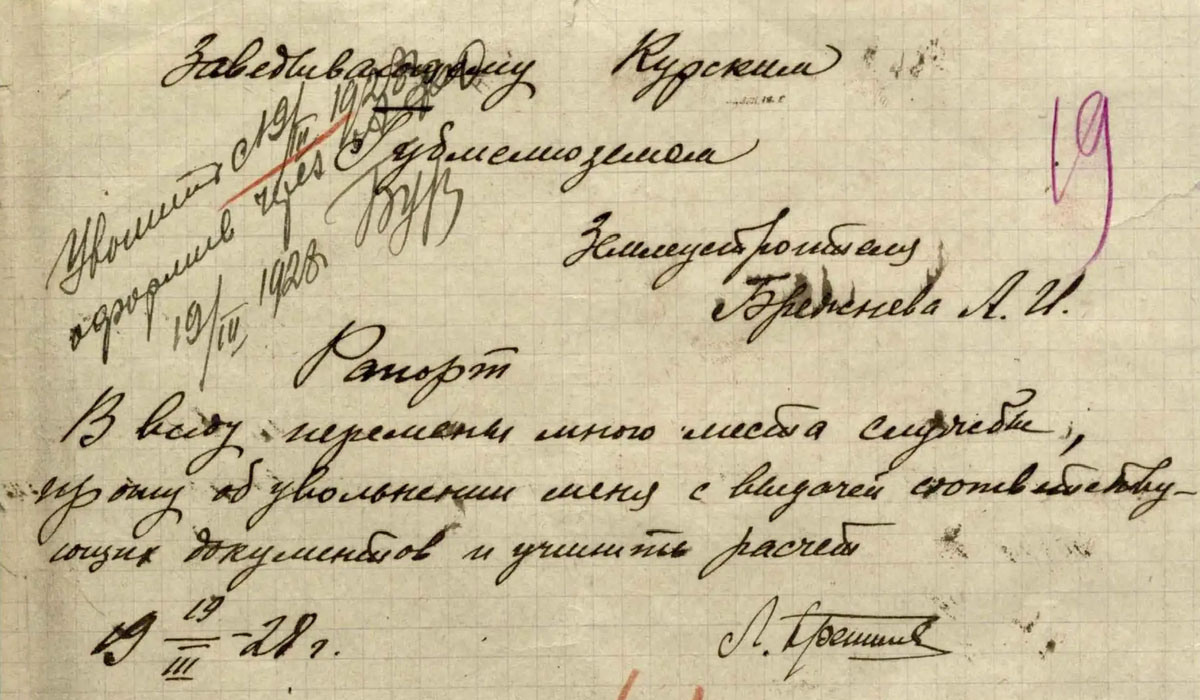 Заведывающему Курским
Губмелиоземом
Землеустроителя
Брежнева Л. И.
Уволить с 19/III 1928
оформив через
19/III 1928г
Рапорт
В виду перемены мною места службы,
прошу об увольнении меня с выдачей соответству-
ющих документов и учинить расчет
19 19/III - 28 г.
Л. Брежнев
19